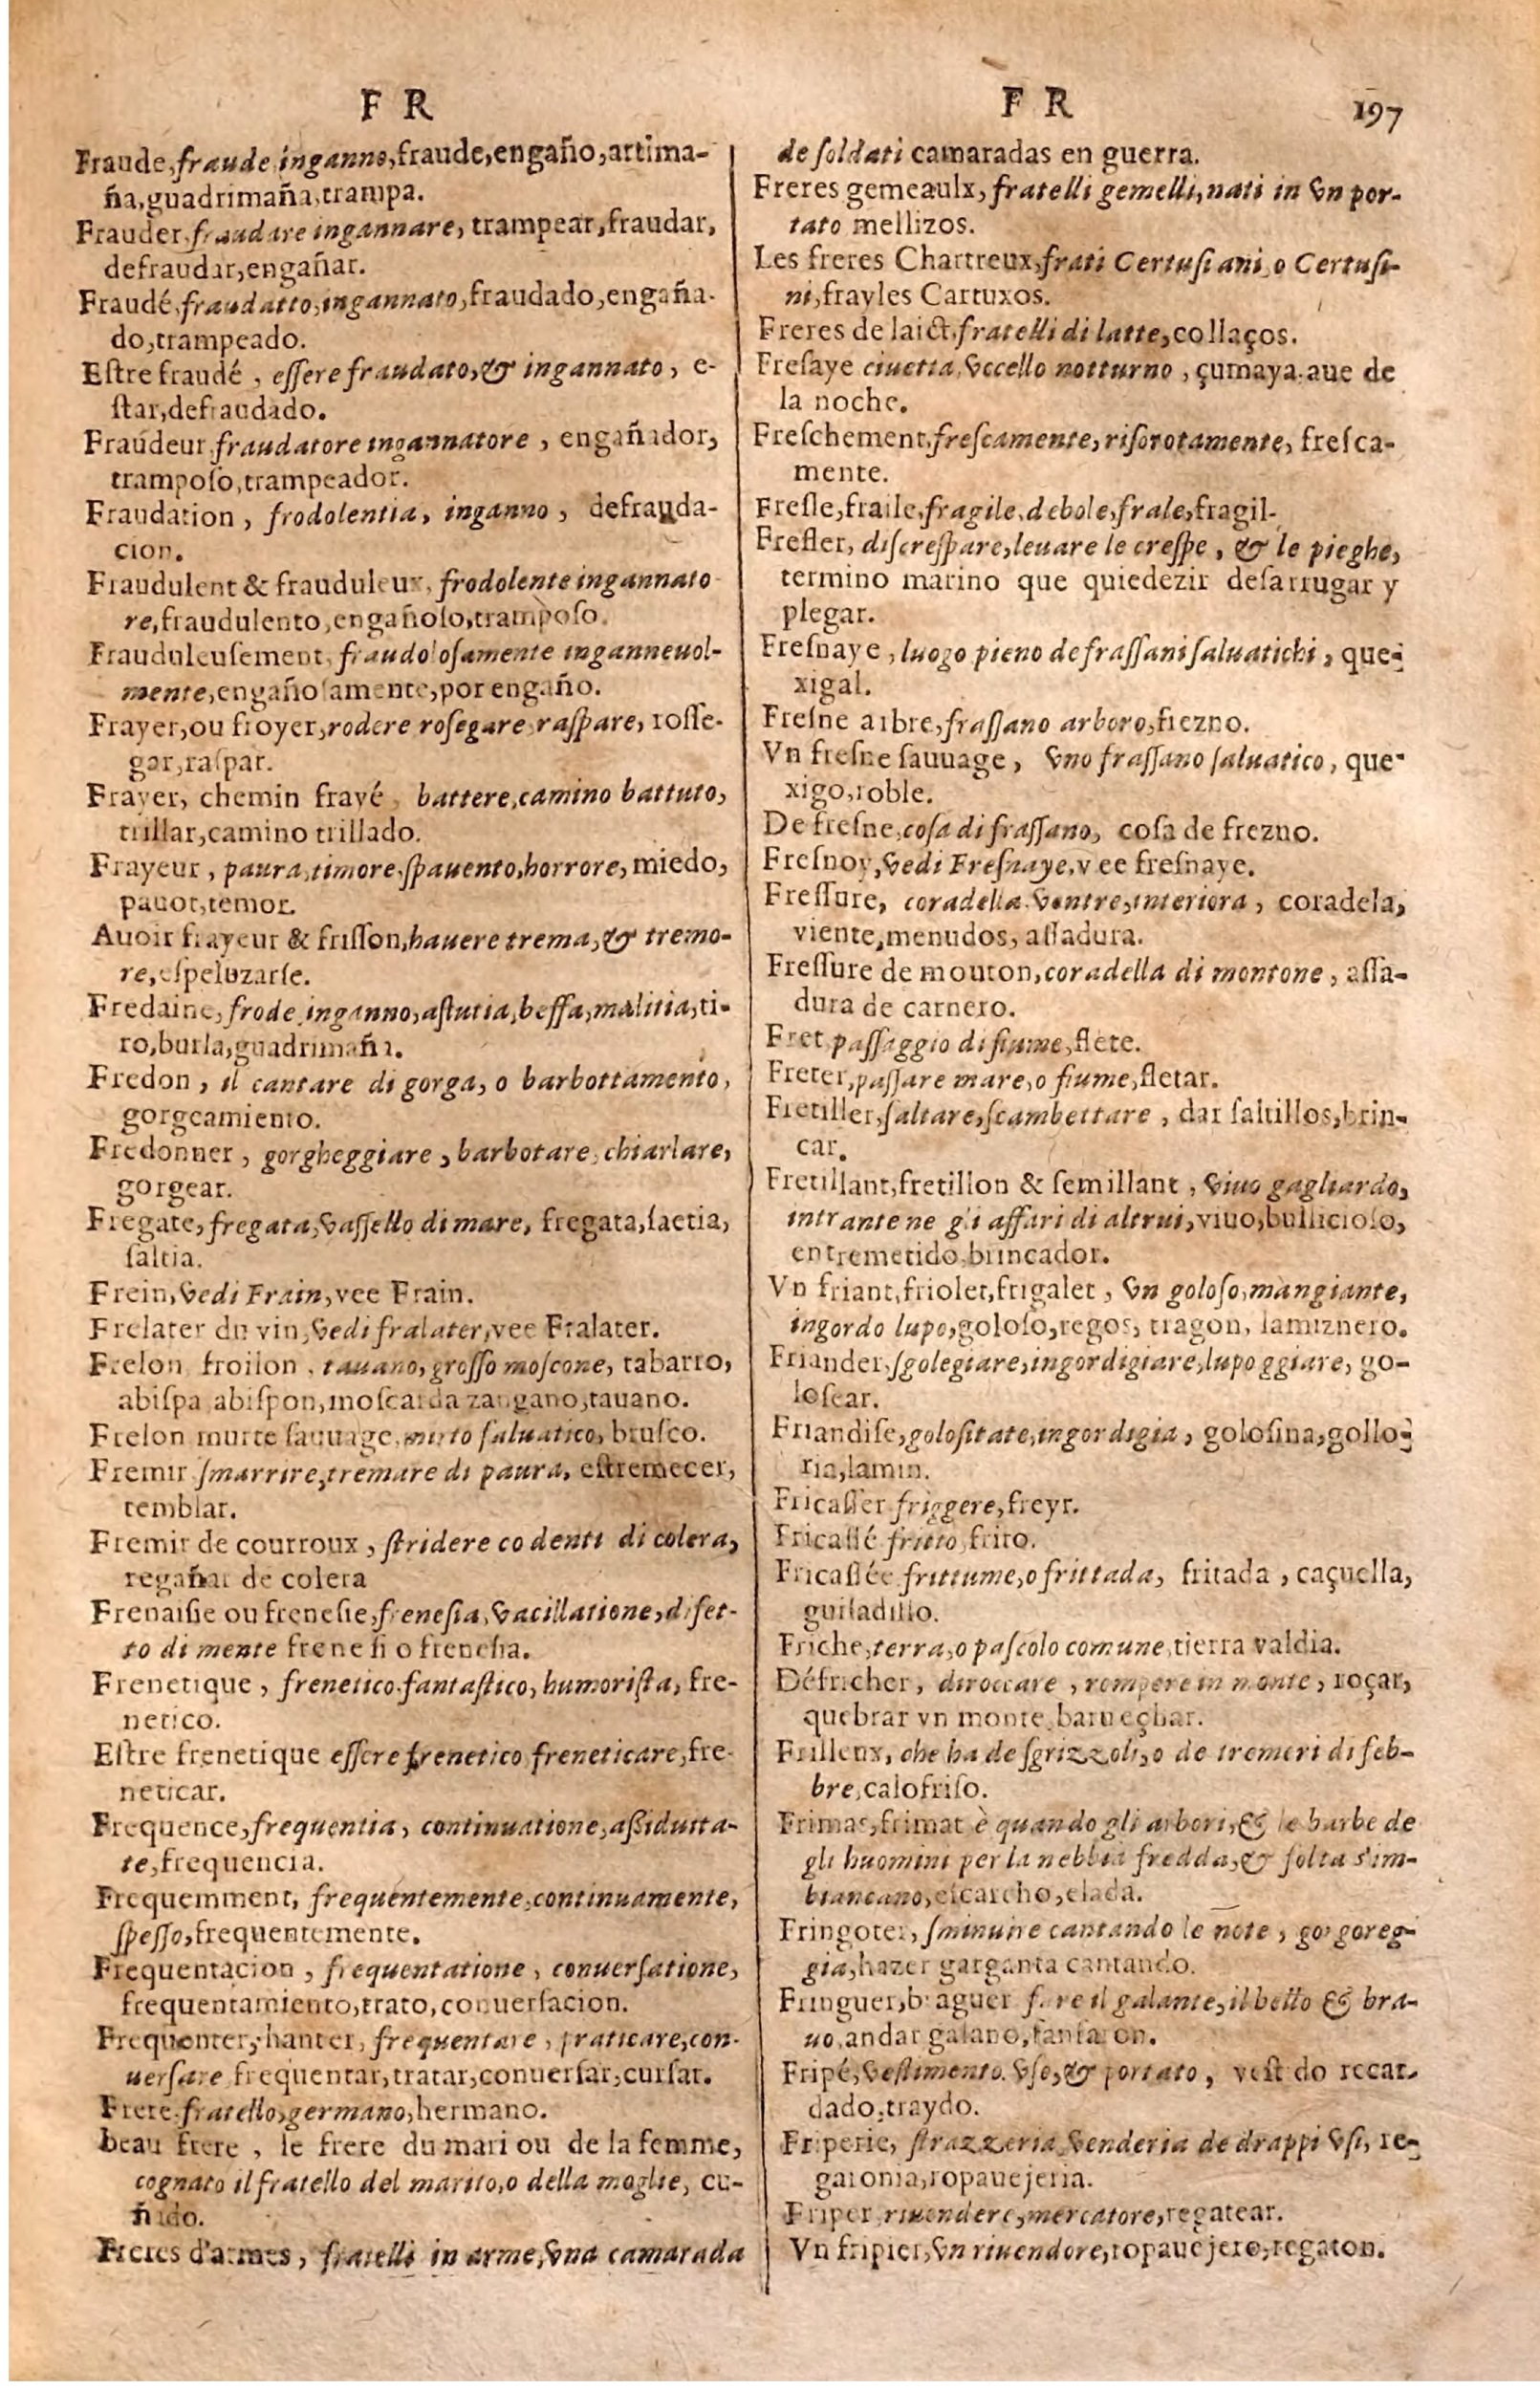 F R
Fraude, fraude, inganno, fraude, engaño, artima-
ña, guadrimaña, trampa.
Frauder, fraudare ingannare, trampear, fraudar,
defraudar, engañar.
Fraudé, fraudatto, ingannato, fraudado, engaña-
do, trampeado.
Eſtre fraudé, eſſere fraudato, & ingannato, e-
ſtar, defraudado.
Fraudeur, fraudatore ingannatore, engañador,
trampoſo, trampeador.
Fraudation, frodolentia, inganno, defrauda-
cion.
Fraudulent & frauduleux, frodolente ingannato
re, fraudulento, engañoſo, trampoſo.
Frauduleuſement, fraudoloſamente inganneuol-
mente, engañoſamente, por engaño.
Frayer, ou froyer, rodere roſegare, raſpare, roſſe-
gar, raſpar.
Frayer, chemin frayé, battere, camino battuto,
trillar, camino trillado.
Frayeur, paura, timore, ſpauento, horrore, miedo,
pauor, temor.
Auoir frayeur & friſſon, hauere trema, & tremo-
re, eſpeluzarſe.
Fredaine, frode, inganno, aſtutia, beffa, malitia, ti-
ro, burla, guadrimaña.
Fredon, il cantare di gorga, o barbottamento,
gorgeamiento.
Fredonner, gorgheggiare, barbotare, chiarlare,
gorgear.
Fregate, fregata, vaſſello di mare, fregata, ſaetia,
ſaltia.
Frein, vedi Frain, vee Frain.
Frelater du vin, vedi fralater, vee Fralater.
Frelon froilon, tauano, groſſo moſcone, tabarro,
abiſpa abiſpon, moſcarda zangano, tauano.
Frelon murte ſauuage, mirto ſaluatico, bruſco.
Fremir ſmarrire, tremare di paura, eſtremecer,
temblar.
Fremir de courroux, ſtridere co denti di colera,
regañar de colera
Frenaiſie ou freneſie, freneſia, vacillatione, difet-
to di mente freneſi o freneſia.
Frenetique, frenetico, fantaſtico, humoriſta, fre-
netico.
Eſtre frenetique eſſere frenetico freneticare, fre-
neticar.
Frequence, frequentia, continuatione, aſsiduita-
te, frequencia.
Frequemment, frequentemente, continuamente,
ſpeſſo, frequentemente.
Frequentacion, frequentatione, conuerſatione,
frequentamiento, trato, conuerſacion.
Frequenter, hanter, frequentare, praticare, con-
uerſare frequentar, tratar, conuerſar, curſar.
Frere fratello, germano, hermano.
beau frere, le frere du mari ou de la femme,
cognato il fratello del marito, o della moglie, cu-
ñado.
Freres d'armes, fratelli in arme, vna camarada
F R 197
de ſoldati camaradas en guerra.
Freres gemeaulx, fratelli gemelli, nati in vn por-
tato mellizos.
Les freres Chartreux, frati Certuſiani, o Certuſi-
ni, frayles Cartuxos.
Freres de laict, fratelli di latte, collaços.
Freſaye ciuetta, vccello notturno, çumaya, aue de
la noche.
Freſchement, freſcamente, riſorotamente, freſca-
mente.
Freſle, fraile, fragile, debole, frale, fragil.
Freſler, diſcreſpare, leuare le creſpe, & le pieghe,
termino marino que quiedezir deſarrugar y
plegar.
Freſnaye, luogo pieno de fraſſani ſaluatichi, que-
xigal.
Freſne arbre, fraſſano arboro, frezno.
Vn freſne ſauuage, vno fraſſano ſaluatico, que-
xigo, roble.
De freſne, coſa di fraſſano, coſa de frezno.
Freſnoy, vedi Freſnaye, vee freſnaye.
Freſſure, coradella, ventre, interiora, coradela,
viente, menudos, aſſadura.
Freſſure de mouton, coradella di montone, aſſa-
dura de carnero.
Fret, paſſaggio di fiume, flete.
Freter, paſſare mare, o fiume, fletar.
Fretiller, ſaltare, ſcambettare, dar ſaltillos, brin-
car.
Fretillant, fretillon & ſemillant, viuo gagliardo,
intrante ne gli affari di altrui, viuo, bullicioſo,
entremetido, brincador.
Vn friant, friolet, frigalet, vn goloſo, mangiante,
ingordo lupo, goloſo, regos, tragon, lamiznero.
Friander, ſgolegiare, ingordigiare, lupoggiare, go-
loſear.
Friandiſe, goloſitate, ingordigia, goloſina, gollo-
ria, lamin.
Fricaſſer friggere, freyr.
Fricaſſé fritto, frito.
Fricaſſée frittume, o frittada, fritada, caçuella,
guiſadillo.
Friche, terra, o paſcolo comune, tierra valdia.
Défricher, diroccare, rompere in monte, roçar,
quebrar vn monte, barueçhar.
Frilleux, che ha de ſgrizzoli, o de tremeri di feb-
bre, calofriſo.
Frimas, frimat è quando gli arbori, & le barbe de
gli huomini per la nebbia fredda, & folta s'im-
biancano, eſcarcho, elada.
Fringoter, ſminuire cantando le note, gorgoreg-
gia, hazer garganta cantando.
Fringuer, braguer fare il galante, il bello & bra-
uo, andar galano, fanfaron.
Fripé, veſtimento, vſo, & portato, veſtido recar-
dado, traydo.
Friperie, ſtrazzeria, venderia de drappi vſi, re-
gatonia, ropauejeria.
Friper riuendere, mercatore, regatear.
Vn fripier, vn riuendore, ropauejero, regaton.